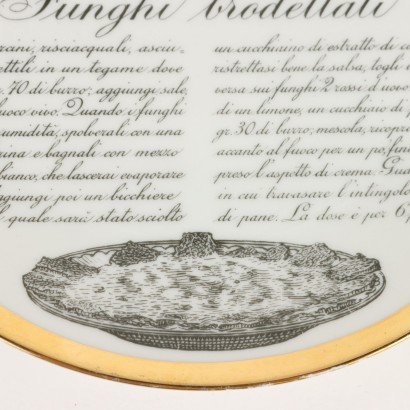 Funghi brodettati
rcini, risciacquali, asciu-
ettili in un tegame dove
gr. 70 di burro; aggiungi sale,
fuoco vivo. Quando i funghi
umidità, spolverali con una
rina e bagnali con mezzo
bianco, che lascerai evaporare
aggiungi poi un bicchiere
l quale sarà stato sciolto
un cucchiaino di estratto di c
ristrettasi bene la salsa, togli i
versa sui funghi 2 rossi d'uovo
di un limone, un cucchiaio di p
gr. 30 di burro; mescola, ricopri
accanto al fuoco per un po', fin
preso l'aspetto di crema. Gua
in cui travasare l'intingolo
di pane. La dose è per 6 p